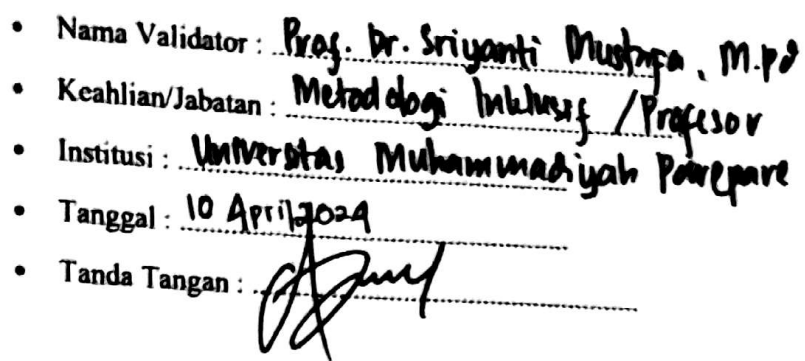 • Nama Validator : Prof. Dr. Sriyanti Mustafa, M.pd
• Keahlian/Jabatan : Metodologi Inklusif / Profesor
• Institusi : Universitas Muhammadiyah Parepare
• Tanggal : 10 April 2024
• Tanda Tangan :